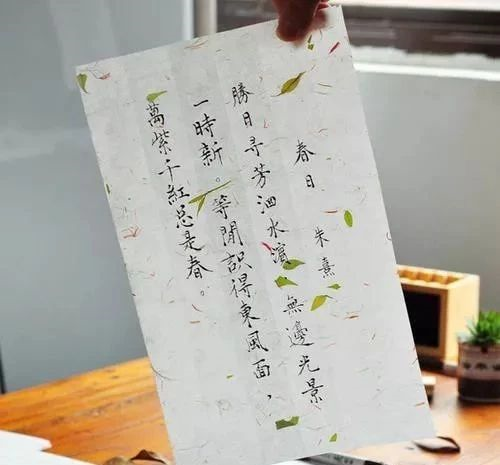 春日 朱熹
勝日寻芳泗水濵，無邊光景
一時新。等閒誤得東風面，
萬紫千紅总是春。